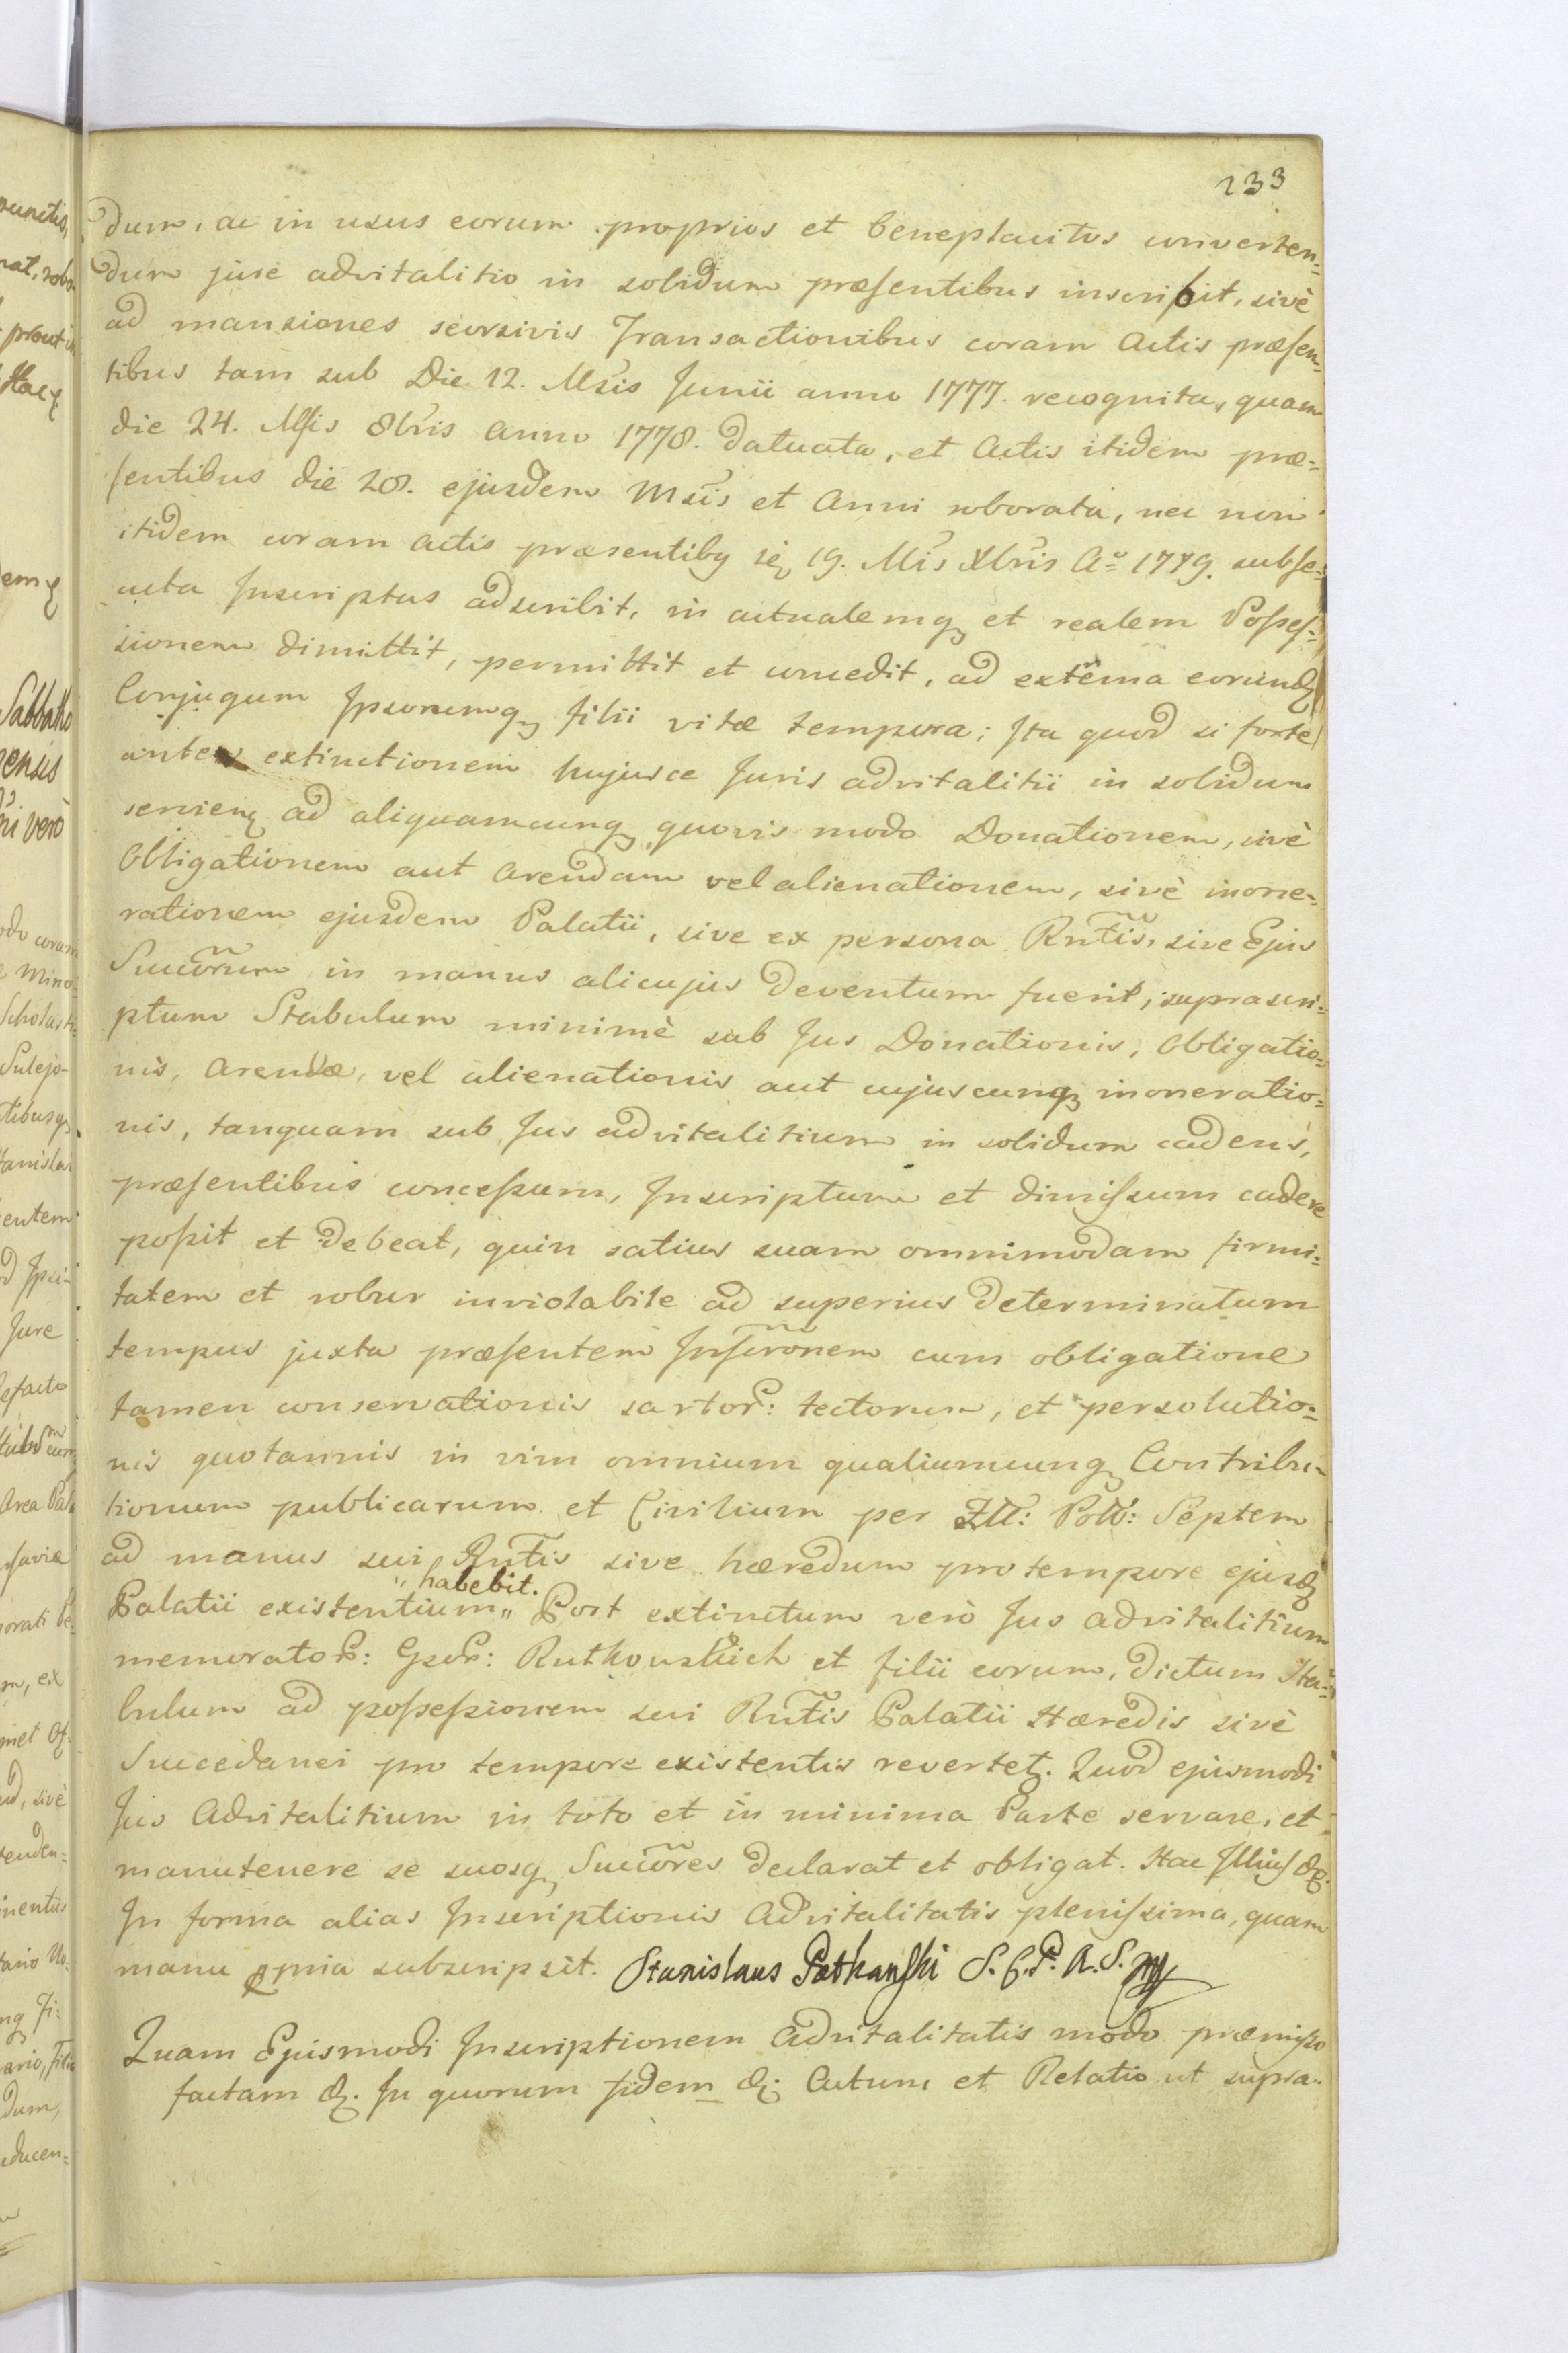 233
dum, ac in usus eorum proprios et beneplacitos converten=
dum jure advitalitio in solidum præsentibus inscribit, sivè
ad mansiones seorsivis Transactionibus coram Actis præsen=
tibus tam sub Die 12. Msis Junii anno 1777. recognita, quam
die 24. Msis 8bris Anno 1778. datuata, et Actis itidem præ=
sentibus die 28. ejusdem Msis et Anni roborata, nec non
itidem coram Actis præsentibꝯ 19. Mis Xbris Aº 1779. subse=
cuta Inscriptus adscribit, in actualemqꝫ et realem Posses=
sionem dimittit, permittit et concedit, ad extĕma eorundꝫ
Conjugum Ipsorumqꝫ filii vitæ tempora; Ita quod si forte
ante extinctionem hujusce Juris advitalitii in solidum
servienꝫ ad aliquamcunqꝫ quovis modo Donationem, sivè
Obligationem aut Arendam vel alienationem, sivè inone=
rationem ejusdem Palatii, sive ex persona Rntis, sive Ejus
Succorum in manus alicujus deventum fuerit; suprascri=
ptum Stabulum minimè sub Jus Donationis, Obligatio=
nis, Arendæ, vel alienationis aut cujuscunqꝫ inoneratio=
nis, tanquam sub Jus advitalitium in solidum cadens,
præsentibus concessum, Inscriptum et dimissum cadere
possit et debeat, quin satius suam omnimodam firmi=
tatem et robur inviolabile ad superius determinatum
tempus juxta præsentem Inscronem cum obligatione
tamen conservationis sartor: tectorum, et persolutio=
nis quotannis in vim omnium qualiumcunqꝫ Contribu=
tionum publicarum et Civilium per Fll: Poll: Septem
ad manus sui Rntis sive hæredum pro tempore ejusdꝫ
„habebit.
Palatii existentium„ Post extinctum verò Jus advitalitium
memorator: Gsor: Rutkouskich et filii eorum, dictum Sta=
bulum ad possessionem sui Rntis Palatii Hæredis sivè
Succedanei pro tempore existentis revertetꝫ. Quod ejusmodi
Jus Advitalitium in toto et in minima Parte servare, et
manutenere se suosqꝫ Succores declarat et obligat. Hac Illius &.
In forma alias Inscriptionis Advitalitatis plenissima, quam
manu ꝓpria subscripsit. Stanislaus Pothanski S. C. P. A. S. mp
Quam Ejusmodi Inscriptionem Advitalitatis modo præmisso
factam &. In quorum fidem &. Actum et Relatio ut supra.